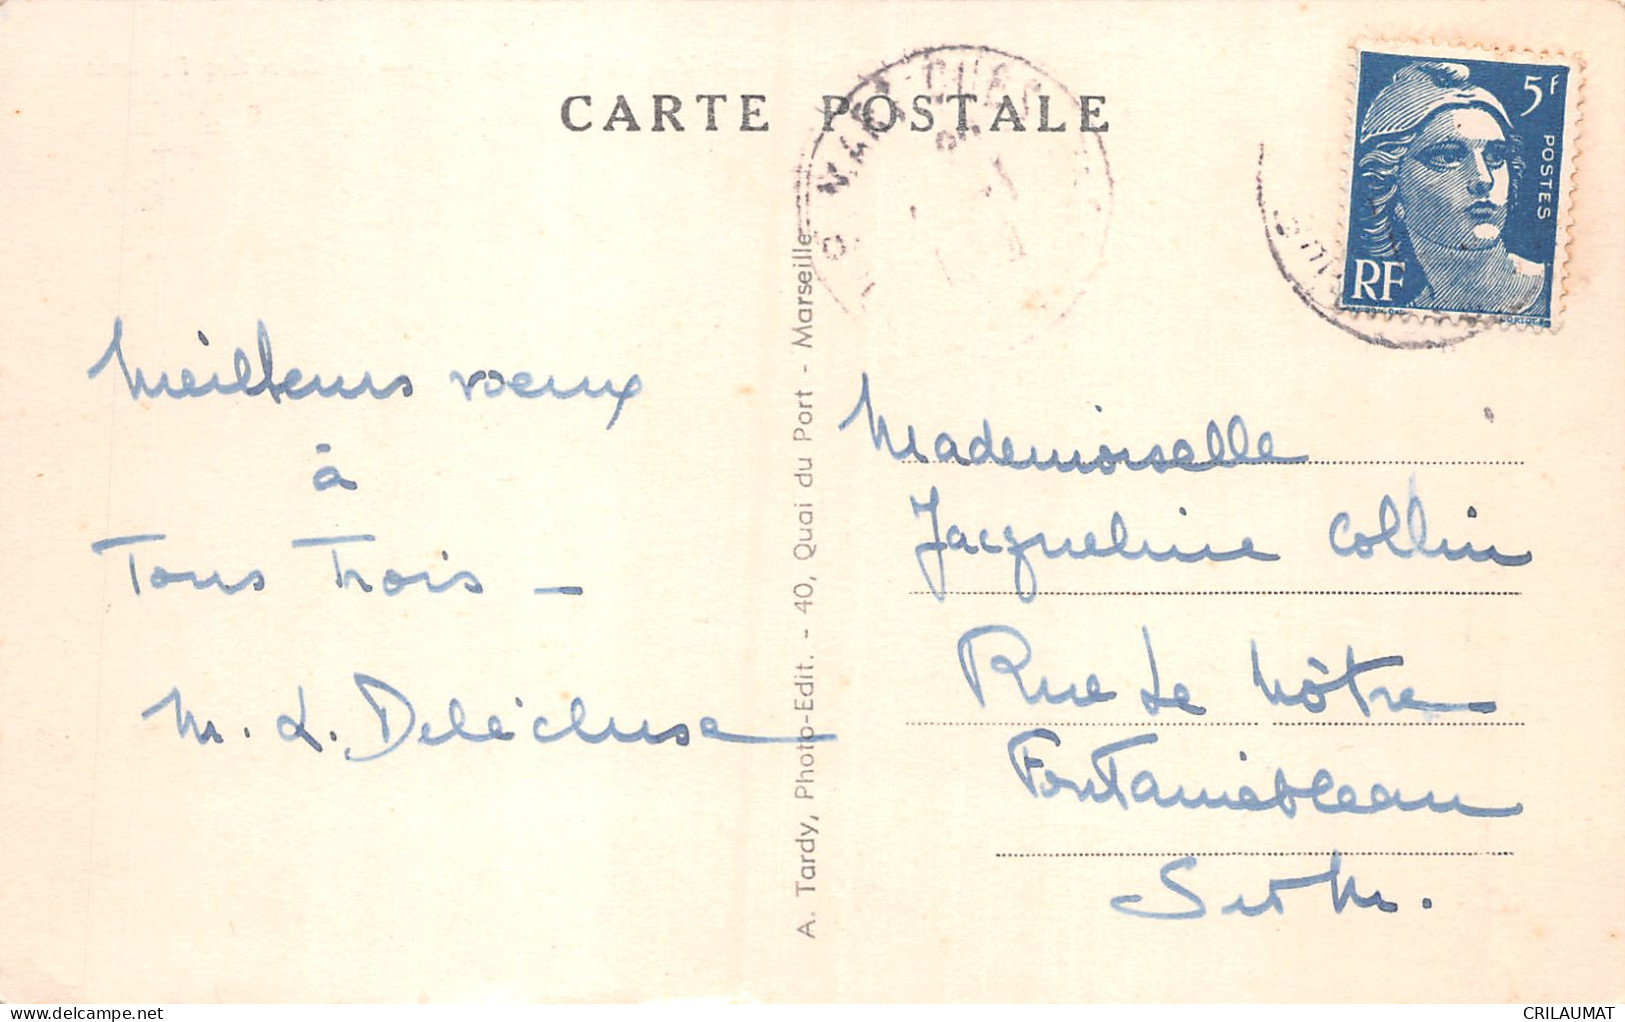 CARTE POSTALE
5F
POSTES
RF
Meilleurs vœux
à
Tous Trois –
M. L. Delécluse
A. Tardy, Photo-Edit. - 40, Quai du Port - Marseille
Mademoiselle
Jacqueline Collin
Rue Le Nôtre
Fontainebleau
S et M.
delcampe.net
CRILAUMAT